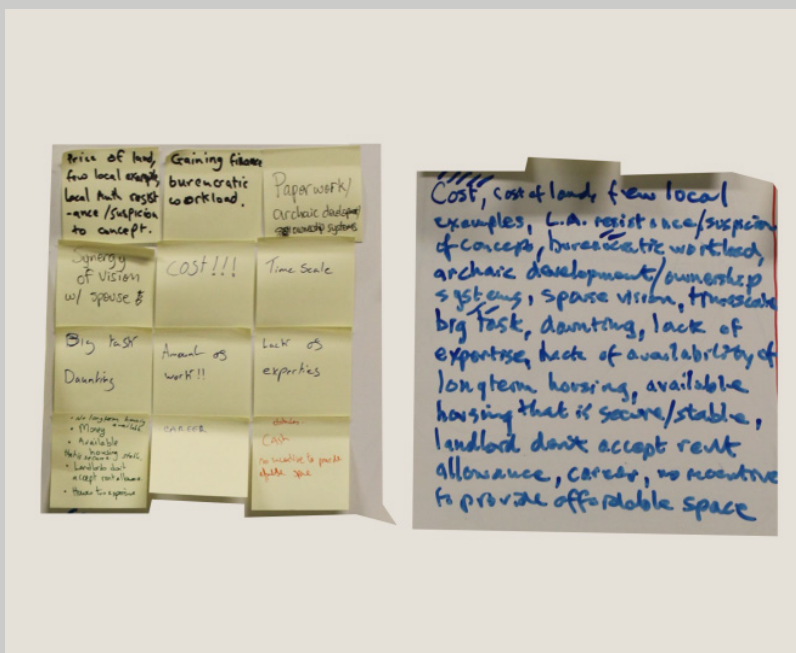 Price of land,
few local example,
Local Auth resist
-ance/suspicion
to concept.
Gaining finance
bureucratic
workload.
Paperwork/
archaic
ownership systems
Synergy
of vision
w/ spouse
COST!!!
Time Scale
Big task
Daunting
Amount of
work!!
Lack of
experties
• No long term
• Money
• Available
housing
• Landlords don't
accept rent allowance
CAREER
Cash
no incentive to provide
space
Cost, cost of land, few local
examples, L.A. resistance/suspicion
of concept, bureucratic workload,
archaic development/ownership
systems, spouse vision, timescale
big task, daunting, lack of
expertise, lack of availability of
longterm housing, available
housing that is secure/stable,
landlord don't accept rent
allowance, career, no incentive
to provide affordable space